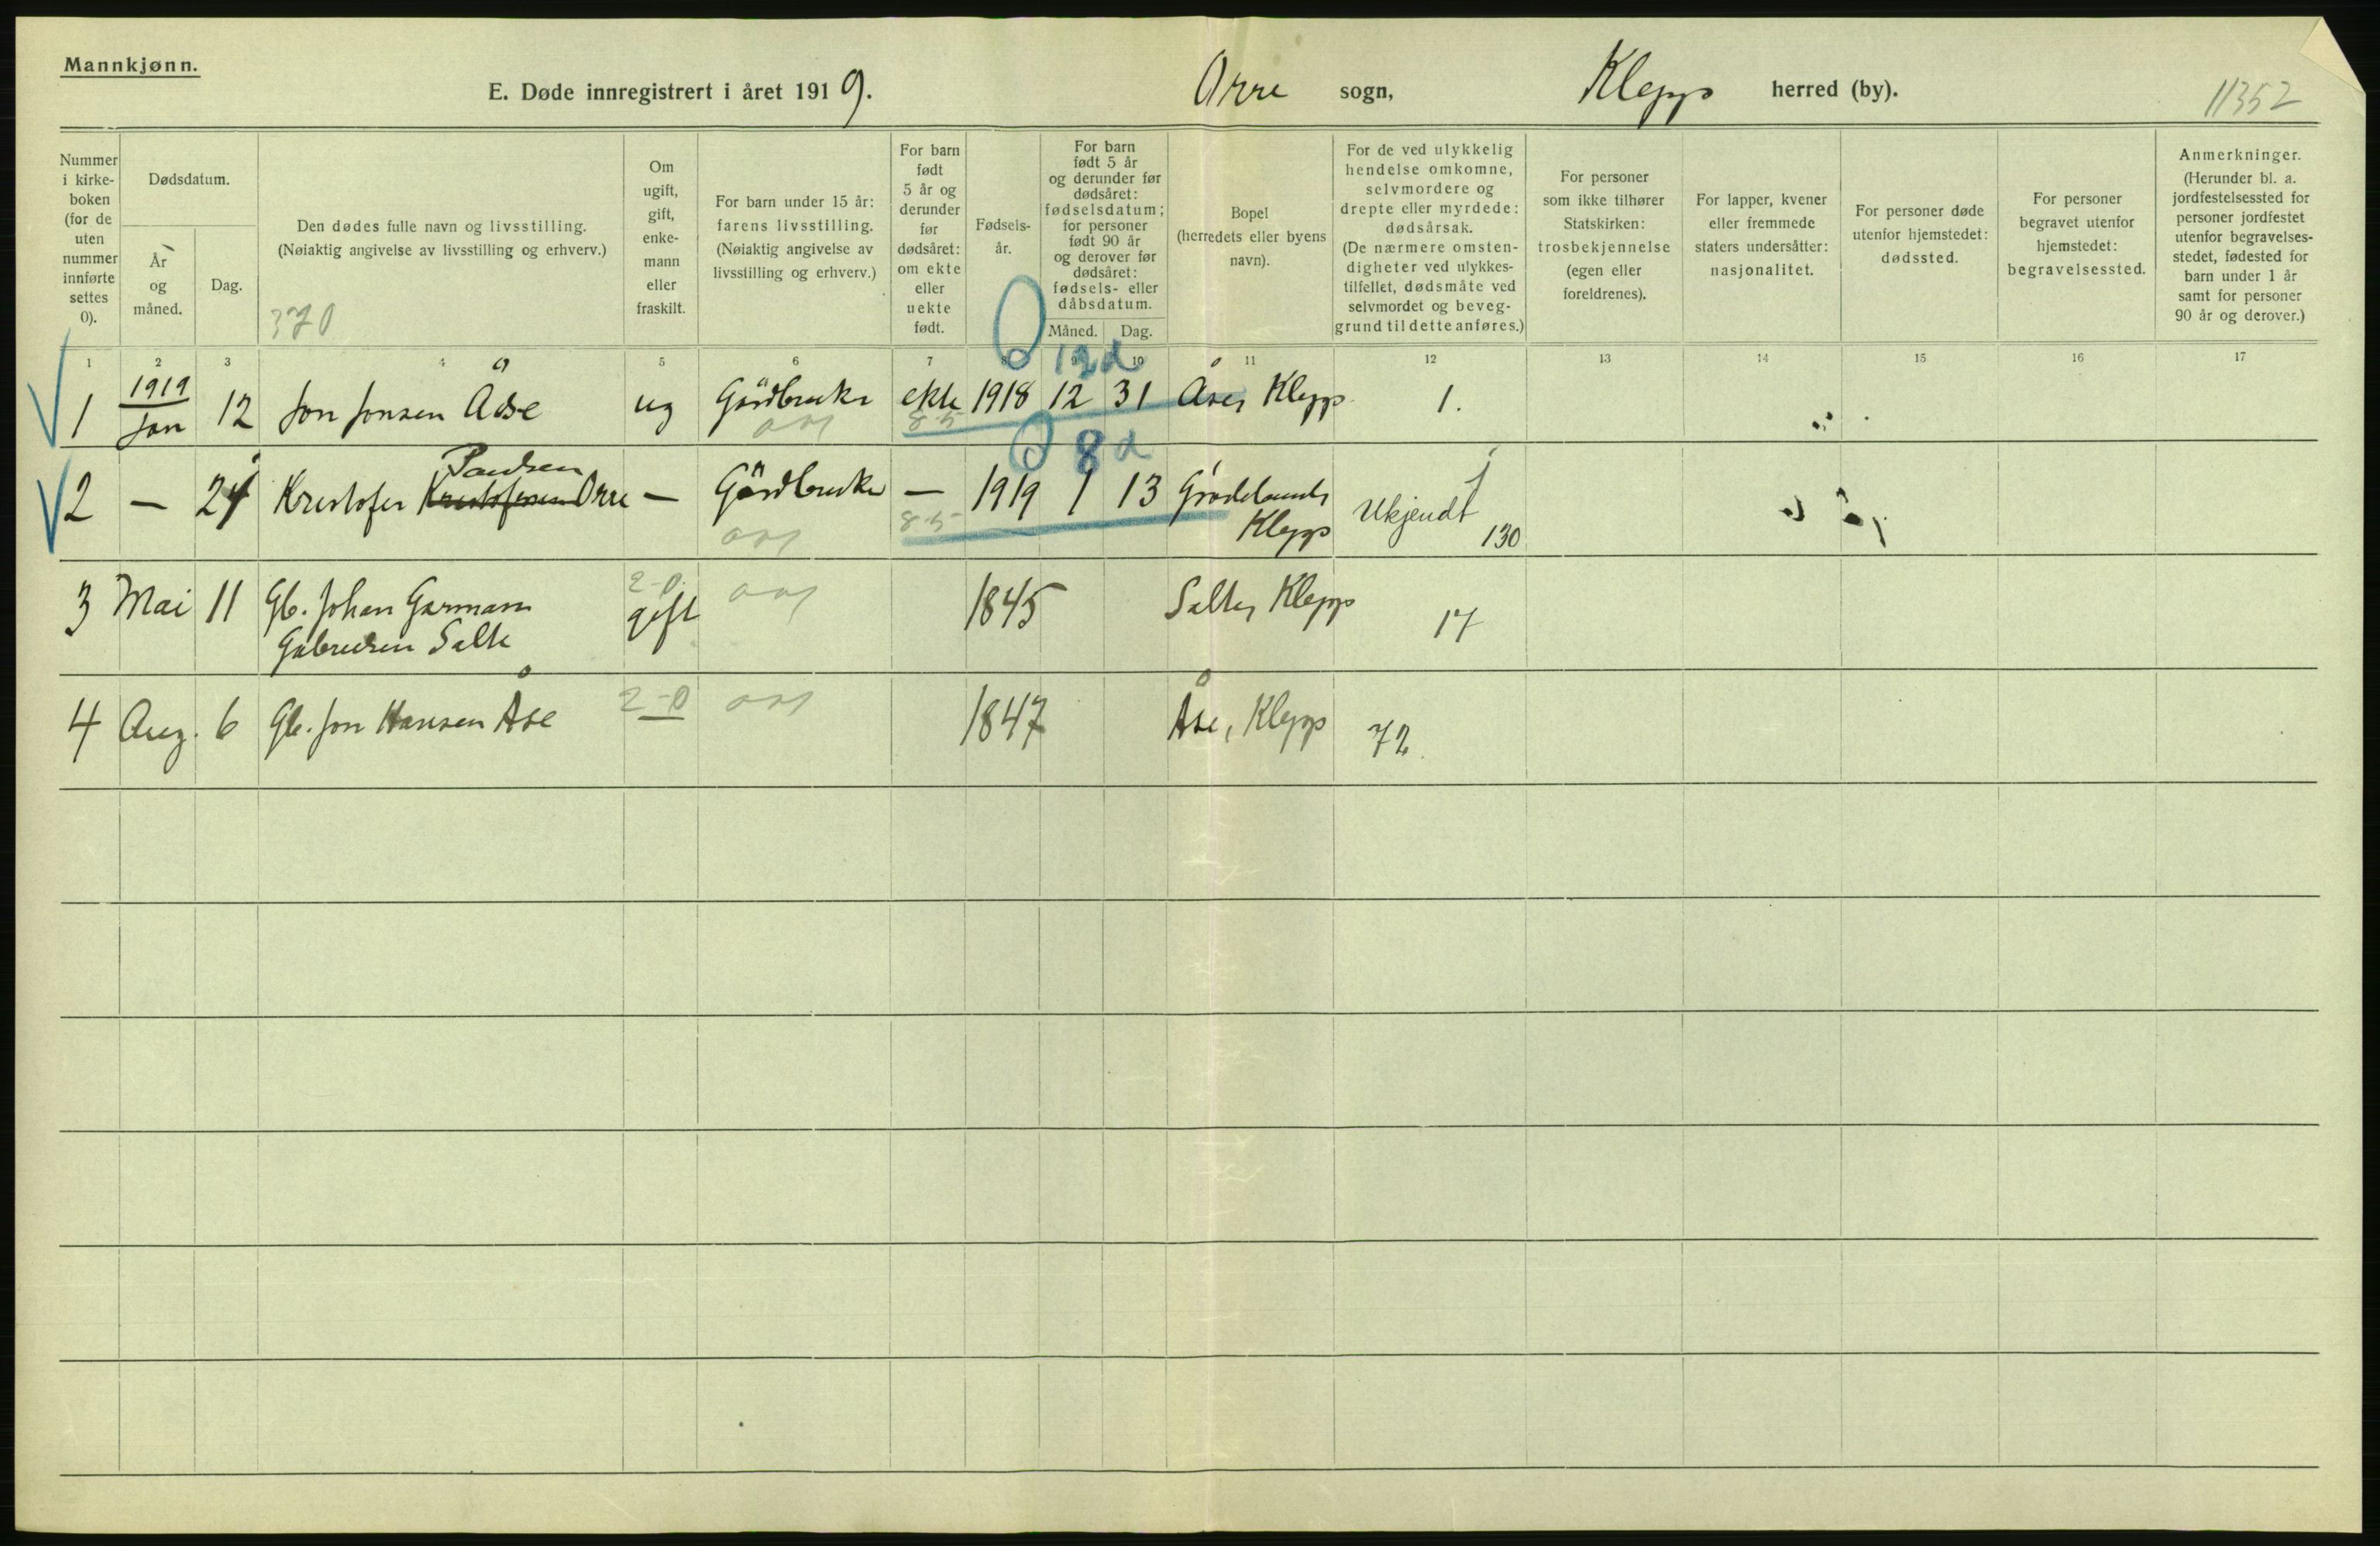 Mannkjønn.
E. Døde innregistrert i året 1919. Orre sogn, Klepp herred (by). 11352
Nummer i kirke-boken (for de uten nummer innførte settes 0).
Dødsdatum.
År og måned.
Dag.
Den dødes fulle navn og livsstilling.
(Nøiaktig angivelse av livsstilling og erhverv.)
370
Om ugift, gift, enke-mann eller fraskilt.
For barn under 15 år: farens livsstilling. (Nøiaktig angivelse av livsstilling og erhverv.)
For barn født 5 år og derunder før dødsåret: om ekte eller uekte født.
Fødsels-år.
For barn født 5 år og derunder før dødsåret: fødselsdatum; for personer født 90 år og derover før dødsåret: fødsels- eller dåbsdatum.
Måned. Dag.
Bopel (herredets eller byens navn).
For de ved ulykkelig hendelse omkomne, selvmordere og drepte eller myrdede: dødsårsak. (De nærmere omsten-digheter ved ulykkes-tilfellet, dødsmåte ved selvmordet og beveg-grund til dette anføres.)
For personer som ikke tilhører Statskirken: trosbekjennelse (egen eller foreldrenes).
For lapper, kvener eller fremmede staters undersåtter: nasjonalitet.
For personer døde utenfor hjemstedet: dødssted.
For personer begravet utenfor hjemstedet: begravelsessted.
Anmerkninger. (Herunder bl. a. jordfestelsessted for personer jordfestet utenfor begravelses-stedet, fødested for barn under 1 år samt for personer 90 år og derover.)
1 2 3 4 5 6 7 8 9 10 11 12 13 14 15 16 17
12d
1 1919 Jan 12 Jon Jonsen Åse ug Gårdbruker ekte 1918 12 31 Åse, Klepp 1.
8-5
8d
Paulsen
2 — 21 Kristofer Kristofersen Orre — Gårdbruker — 1919 1 13 Grødelands Klepp Ukjendt 130
8-5
3 Mai 11 Gb. Johan Garmann Gabrielsen Salte 2-0 gift 1845 Salte, Klepp 17
4 Aug. 6 Gb. Jon Hansen Åse 2-0 1847 Åse, Klepp 72